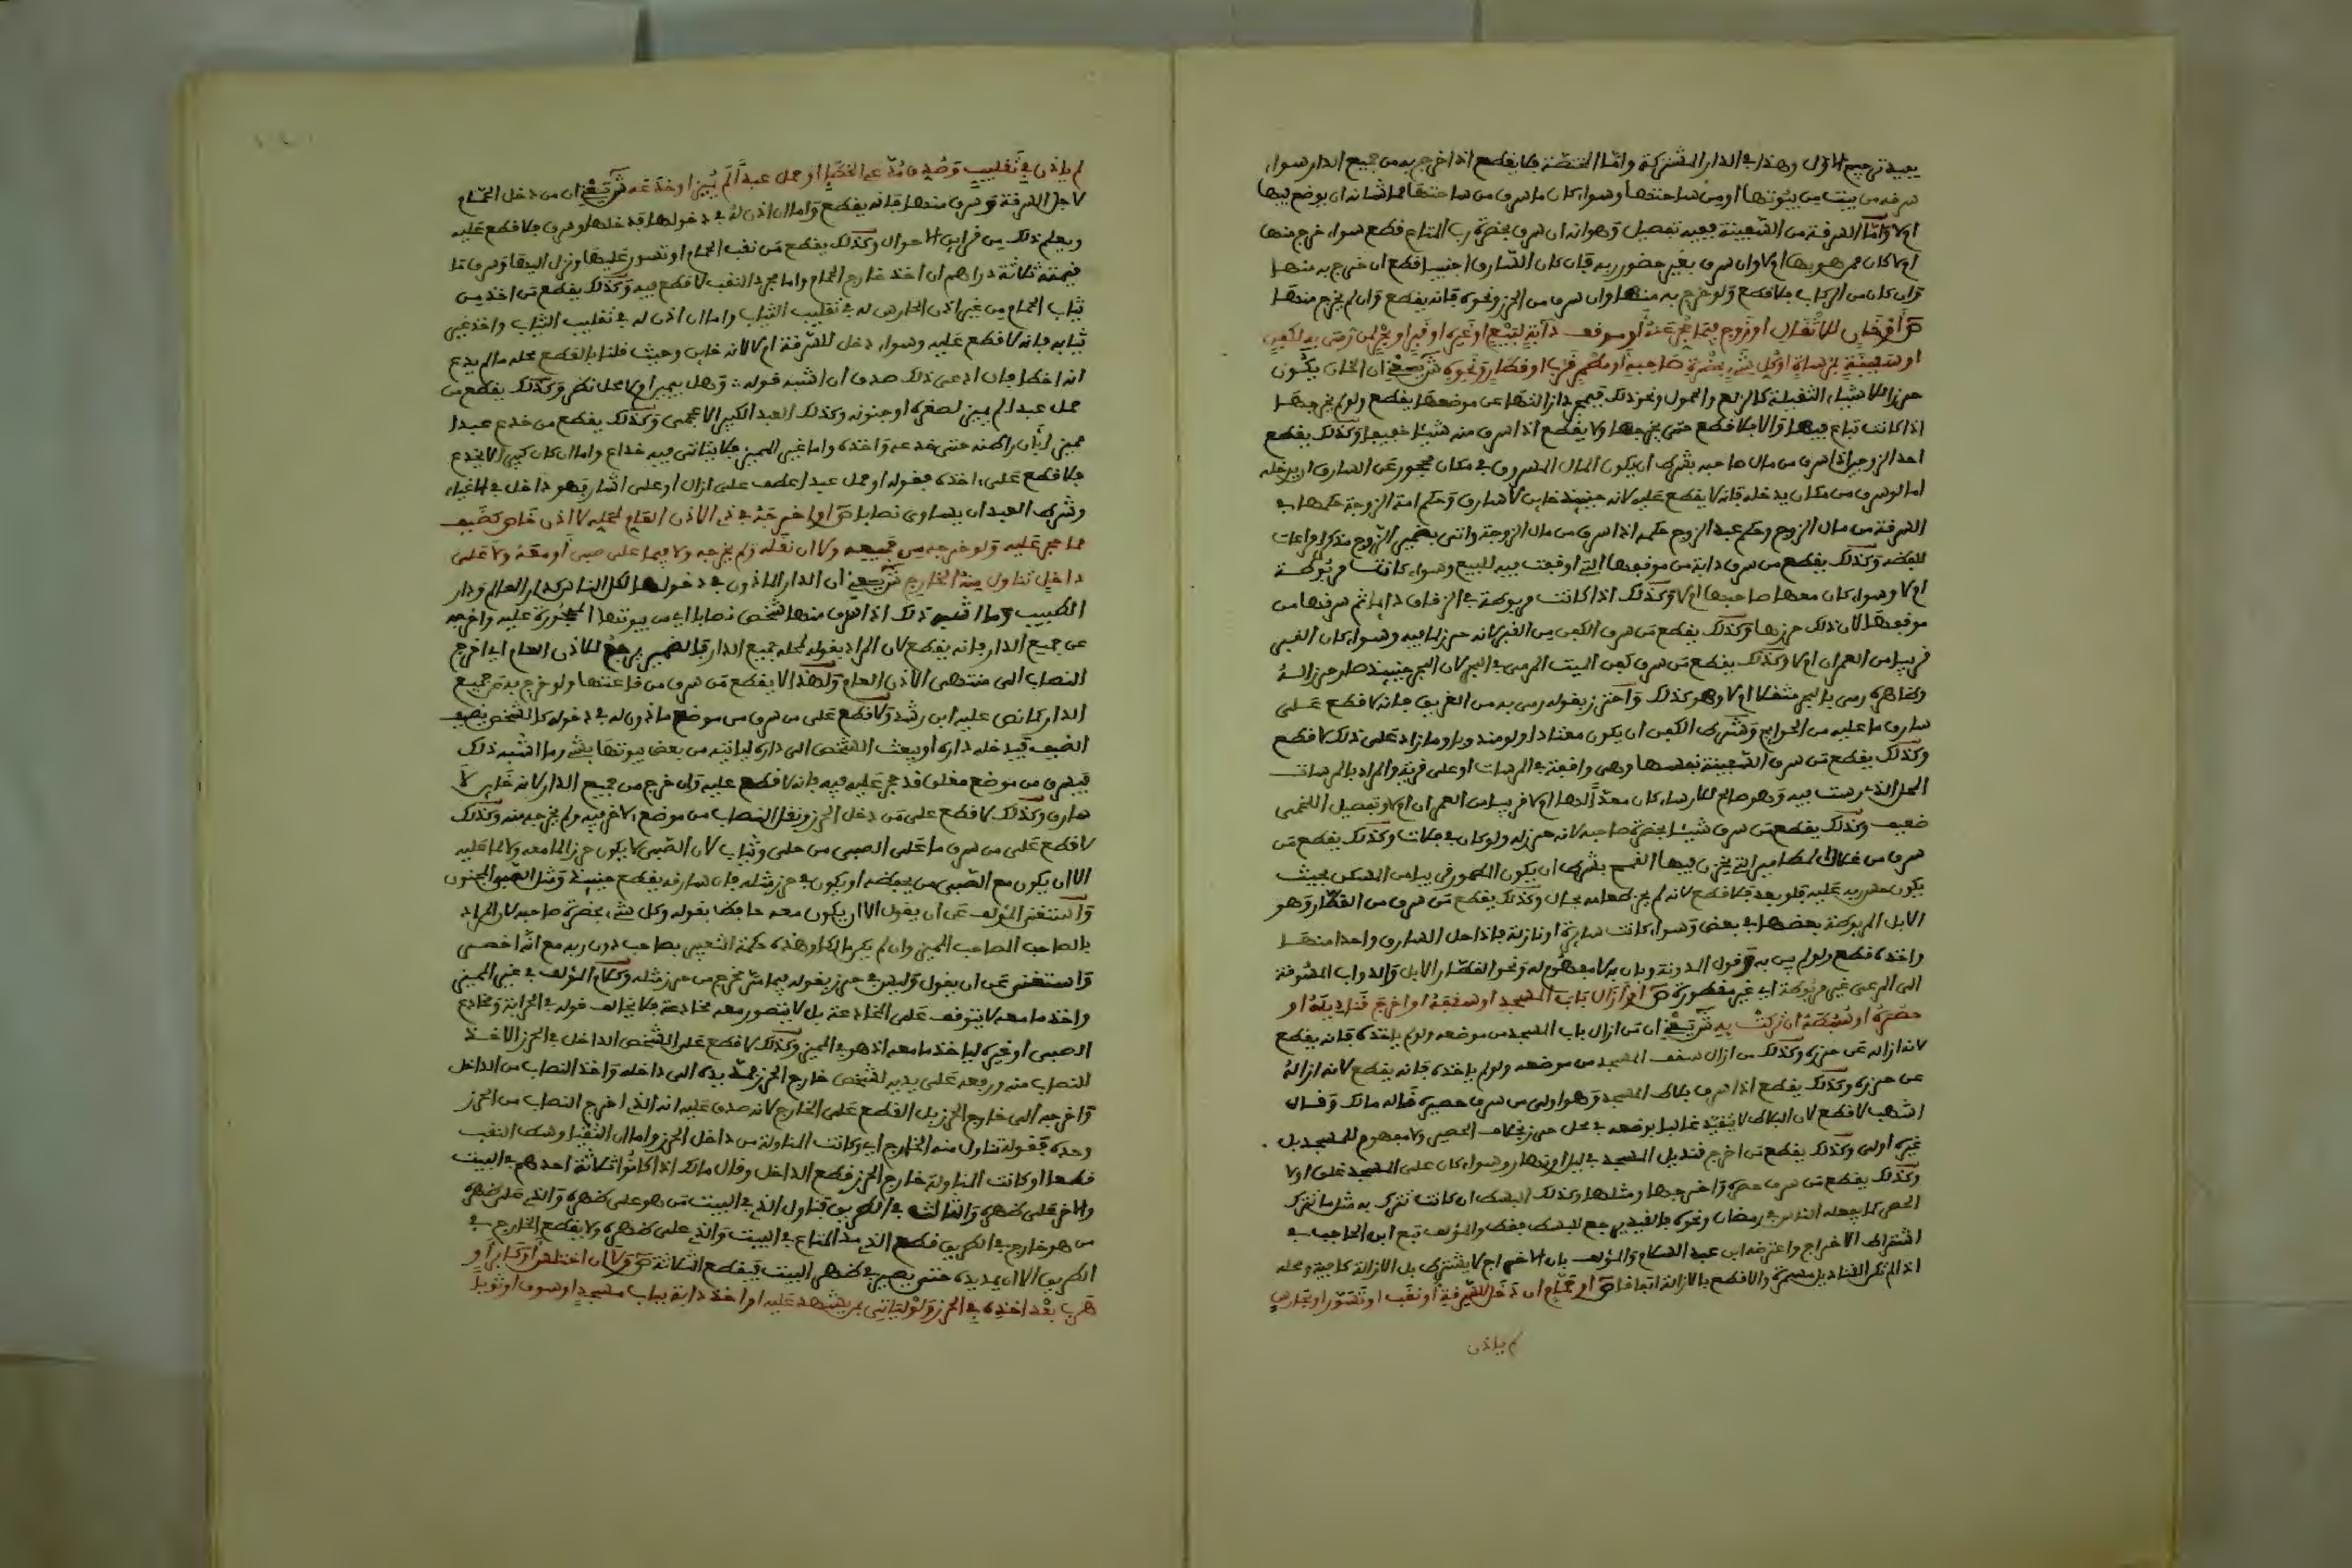 يفيد ترجيح الاول وهذا في الدار المشتركة واما المختصة فلا يقطع اذا خرج به من جميع الدار سواء
سرقه من بيت من بيوتها او من ساحتها وسواء كان ما سرق من ساحتها مما شانه ان يوضع فيها
ام لا واما السرقة من السفينة ففيه تفصيل وهو انه ان سرق بحضرة رب المتاع قطع سواء خرج منها
ام لا كان ممن هو بها ام لا وان سرق بغير حضور ربه فان كان السارق اجنبيا قطع ان خرج به منها
وان كان من الركاب فلا قطع ولو خرج به منها وان سرق من الخن ونحوه فانه يقطع وان لم يخرج منها
ص او خان للاثقال او زوج فيما حجر عنه او موقف دابة لبيع او غيره او قبر او بحر لمن رمي به لكفن
او سفينة بمرساة او كل شيء بحضرة صاحبه او مطمر قرب او قطار ونحوه ش يعني ان الخان يكون
حرزا للاشياء الثقيلة كالزلع والحمول ونحو ذلك فبمجرد ازالتها عن موضعها يقطع ولو لم يخرجها
اذا كانت تباع فيها والا فلا قطع حتى يخرجها ولا يقطع اذا سرق منه شيئا خفيفا وكذلك يقطع
احد الزوجين اذا سرق من مال صاحبه بشرط ان يكون المال المسروق في مكان محجور عن السارق ان يدخله
اما لو سرق من مكان يدخله فانه لا يقطع عليه لانه حينئذ خاين لا سارق وحكم امة الزوجة حكمها في
السرقة من مال الزوج وحكم عبد الزوج حكمه اذا سرق من مال الزوجة واتى بضمير الزوج مذكرا مراعات
للفظه وكذلك يقطع من سرق دابة من موقفها التي اوقفت فيه للبيع وسواء كانت مربوطة
ام لا وسواء كان معها صاحبها ام لا وكذلك اذا كانت مربوطة في الزقاق دايما ثم سرقها من
موقفها لان ذلك حرزها وكذلك يقطع من سرق الكفن من القبر لانه حرز لما فيه وسواء كان القبر
قريبا من العمران ام لا وكذلك يقطع من سرق كفن الميت المرمى في البحر لان البحر حينئذ صار حرزا له
وظاهره رمي بالبحر مثقلا ام لا وهو كذلك واحترز بقوله رمي به من الغريق فانه لا قطع على
سارق ما عليه من الحوايج وشرط الكفن ان يكون معتادا او لو مندوبا وما زاد على ذلك لا قطع
وكذلك يقطع من سرق السفينة نفسها وهي واقفة في المرساة او على قرية والمراد بالمرسات
المحل الذي رست فيه وهو صالح للارساء كان معدا لها ام لا قريبا من العمران ام لا وتفصيل اللخمي
ضعيف وكذلك يقطع من سرق شيئا بحضرة صاحبه لانه حرز له ولو كان في فلات وكذلك يقطع من
سرق من المطامير التي يخزن فيها القمح بشرط ان يكون المطمور قريبا من المسكن بحيث
يكون حضور ربه عليه فلو بعد فلا قطع لانه لم يحرز طعامه بحال وكذلك يقطع من سرق من القطار وهو
الابل المربوطة بعضها في بعض وسواء كانت سايرة او نازلة فاذا حل السارق واحدا منها
واخذه قطع ولو لم يبن به وقول المدونة وبان به لا مفهوم له ونحو القطار الابل والدواب المسوقة
الى المرعى غير مربوطة اي غير مقطورة ص او ازال باب المسجد او سقفه او اخرج قناديله او
حصره او بسطه ان تركت به ش يعني ان من ازال باب المسجد من موضعه ولو لم ياخذه فانه يقطع
لانه ازاله عن حرزه وكذلك من ازال سقف المسجد من موضعه ولو لم ياخذه فانه يقطع لانه ازاله
عن حرزه وكذلك يقطع اذا سرق بلاط المسجد وهو اولى من سرق حصره قاله مالك وقال
اشهب لا قطع لان البلاط لا يتقيد غالبا بوضعه في محل حرز بخلاف الحصر ولا مفهوم للمسجد بل
غيره اولى وكذلك يقطع من اخرج قنديل المسجد في ليل او نهار وسواء كان على المسجد غلق او لا
وكذلك يقطع من سرق حصره واخرجها ومثلها وكذلك البسط ان كانت تترك به مثل ما تترك
الحصر كما يفعله الناس في رمضان ونحوه فالقيد يرجع للبسط فقط والمؤلف تبع ابن الحاجب في
اشتراط الاخراج واعترضه ابن عبد السلام والمؤلف بان الاخراج لا يشترط بل الازالة كافية ومحله
اذا لم تكن القناديل مسمرة والا قطع بالازالة اتفاقا ص او حمام ان دخل للسرقة او نقب او تسور او بحارس
لم ياذن
لم ياذن في تقليب وصدق مدعي الخطا او حمل عبدا لم يميز او خدعه ش يعني ان من دخل الحمام
لاجل السرقة وسرق منها فانه يقطع واما ان اذن له في دخولها فدخلها وسرق فلا قطع عليه
ويعلم ذلك من قراين الاحوال وكذلك يقطع من نقب الحمام او تسور عليها ونزل اليها وسرق ما
قيمته ثلاثة دراهم ان اخذ خارج الحمام واما مجرد النقب لا قطع فيه وكذلك يقطع من اخذ من
ثياب الحمام من غير اذن الحارس له في تقليب الثياب واما ان اذن له في تقليب الثياب واخذ غير
ثيابه فانه لا قطع عليه وسواء دخل للسرقة ام لا لانه خاين وحيث قلنا بالقطع محله ما لم يدع
انه اخطا فان ادعى ذلك صدق ان اشبه قوله وهل بيمين او لا محل نظر وكذلك يقطع من
حمل عبدا لم يميز لصغره او جنونه وكذلك العبد الكبير الاعجمي وكذلك يقطع من خدع عبدا
مميزا بان راطنه حتى خدعه واخذه واما غير المميز فلا يتاتى فيه خداع واما ان كان كبيرا لا يخدع
فلا قطع على اخذه فقوله او حمل عبدا عطف على ازال او على اشار فهو داخل في الاغياء
وشرط العبد ان يساوي نصابا ص او اخرجه في ذي الاذن العام لمحله لا اذن خاص كضيف
مما حجر عليه ولو خرج به من جميعه ولا ان نقله ولم يخرجه ولا فيما على صبي او معه ولا على
داخل تناول منه الخارج ش يعني ان الدار الماذون في دخولها لكل الناس كدار العالم ودار
الطبيب وما اشبه ذلك اذا سرق منها شخص نصابا اي من بيوتها المحجورة عليه واخرجه
عن جميع الدار فانه يقطع لان المراد بقوله لمحله جميع الدار فالضمير يرجع للاذن العام اي اخرج
النصاب الى منتهى الاذن العام ولهذا لا يقطع من سرق من قاعتها ولو خرج به من جميع
الدار كما نص عليه ابن رشد ولا قطع على من سرق من موضع ماذون له في دخوله كالشخص يضيف
الضيف فيدخله داره او يبعث الشخص الى داره لياتيه من بعض بيوتها بشيء وما اشبه ذلك
فيسرق من موضع مغلق قد حجر عليه فيه فانه لا قطع عليه وان خرج من جميع الدار لانه خاين لا
سارق وكذلك لا قطع على من دخل الحرز ونقل النصاب من موضع لاخر فيه ولم يخرجه منه وكذلك
لا قطع على من سرق ما على الصبي من حلي وثياب لان الصبي لا يكون حرزا لما معه ولا لما عليه
الا ان يكون مع الصبي من يحفظه او يكون في حرز مثله فان سارقه يقطع حينئذ ومثل الصبي المجنون
واستغنى المؤلف عن ان يقول الا ان يكون معه حافظ بقوله وكل شيء بحضرة صاحبه لان المراد
بالصاحب الصاحب المميز وان لم يكن مالكا وهذه حكمة التعبير بصاحب دون ربه مع انه اخصر
واستغنى عن ان يقول وليس في حرز بقوله فيما مر يخرج من حرز مثله وكلام المؤلف في غير المميز
واخذ ما معه لا يتوقف على المخادعة بل لا يتصور معه مخادعة فلا يخالف قوله في الحرابة ومخادع
الصبي او غيره لياخذ ما معه اذ هو في المميز وكذلك لا قطع على الشخص الداخل في الحرز لاخذ
النصاب منه ورفعه على يديه لشخص خارج الحرز فمد يده الى داخله واخذ النصاب من الداخل
واخرجه الى خارج الحرز بل القطع على الخارج لانه صدق عليه انه الذي اخرج النصاب من الحرز
وحده فقوله تناول منه الخارج اي وكانت المناولة من داخل الحرز واما ان التقيا وسط النقب
قطعا او كانت المناولة خارج الحرز قطع الداخل وقال مالك اذا كانوا ثلاثة احدهم في البيت
والاخر على ظهره والثالث في الطريق فتناول الذي في البيت من هو على ظهره والذي على ظهره
من هو خارج في الطريق قطع الذي مد المتاع في البيت والذي على ظهره ولا يقطع الخارج في
الطريق الا ان يمد يده حتى يصير في ظهر البيت فيقطع الثلاثة ص ولا ان اختلس او كابر او
هرب بعد اخذه في الحرز ولو لياتي بمن يشهد عليه او اخذ دابة بباب مسجد او سوق او ثوبا